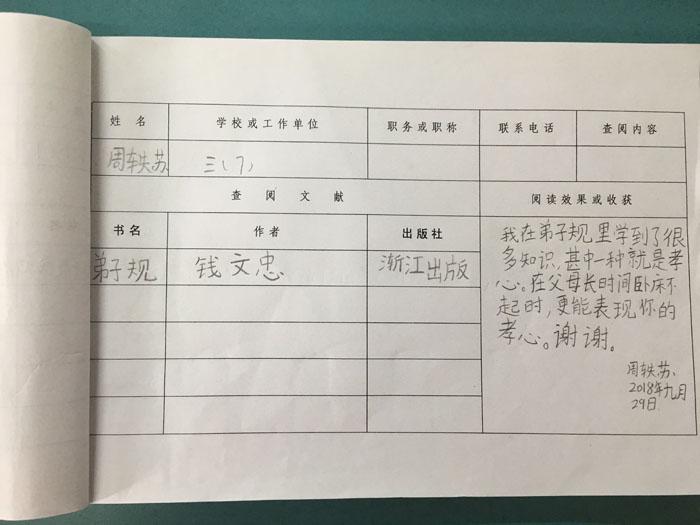 姓名 学校或工作单位 职务或职称 联系电话 查阅内容
周轶苏 三(7)
查阅文献 阅读效果或收获
书名 作者 出版社
弟子规 钱文忠 浙江出版
我在弟子规里学到了很
多知识,其中一种就是孝
心。在父母长时间卧床不
起时,更能表现你的
孝心。谢谢。
周轶苏、
2018年九月
29日